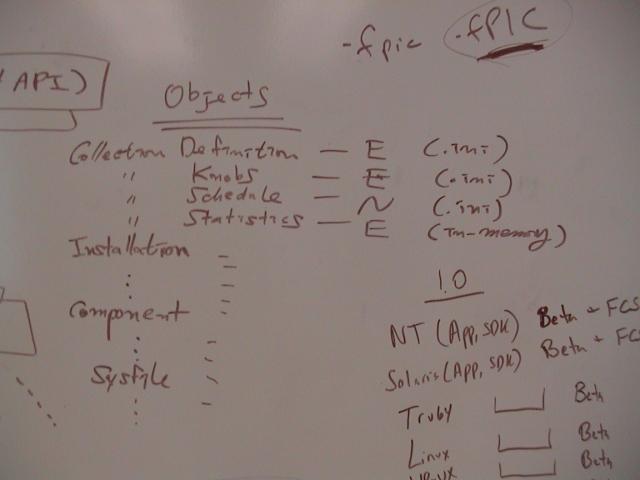 -fpic -fPIC
API)
Objects
Collection Definition — E (.ini)
" Knobs — E (.ini)
" Schedule — N (.ini)
" Statistics — E (In-memory)
Installation
Component
1.0
NT (App, SDK) Beta + FCS
Solaris (App, SDK) Beta + FC
Tru64 Beta
Linux Beta
Beta